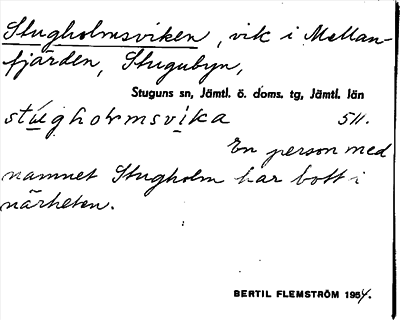 Stugholmsviken, vik i Mellan-
fjärden, Stugubyn,
Stuguns sn, Jämtl. ö. doms. tg, Jämtl. län
stúgholmsvìka 511.
En person med
namnet Stugholm har bott i
närheten.
BERTIL FLEMSTRÖM 1954.